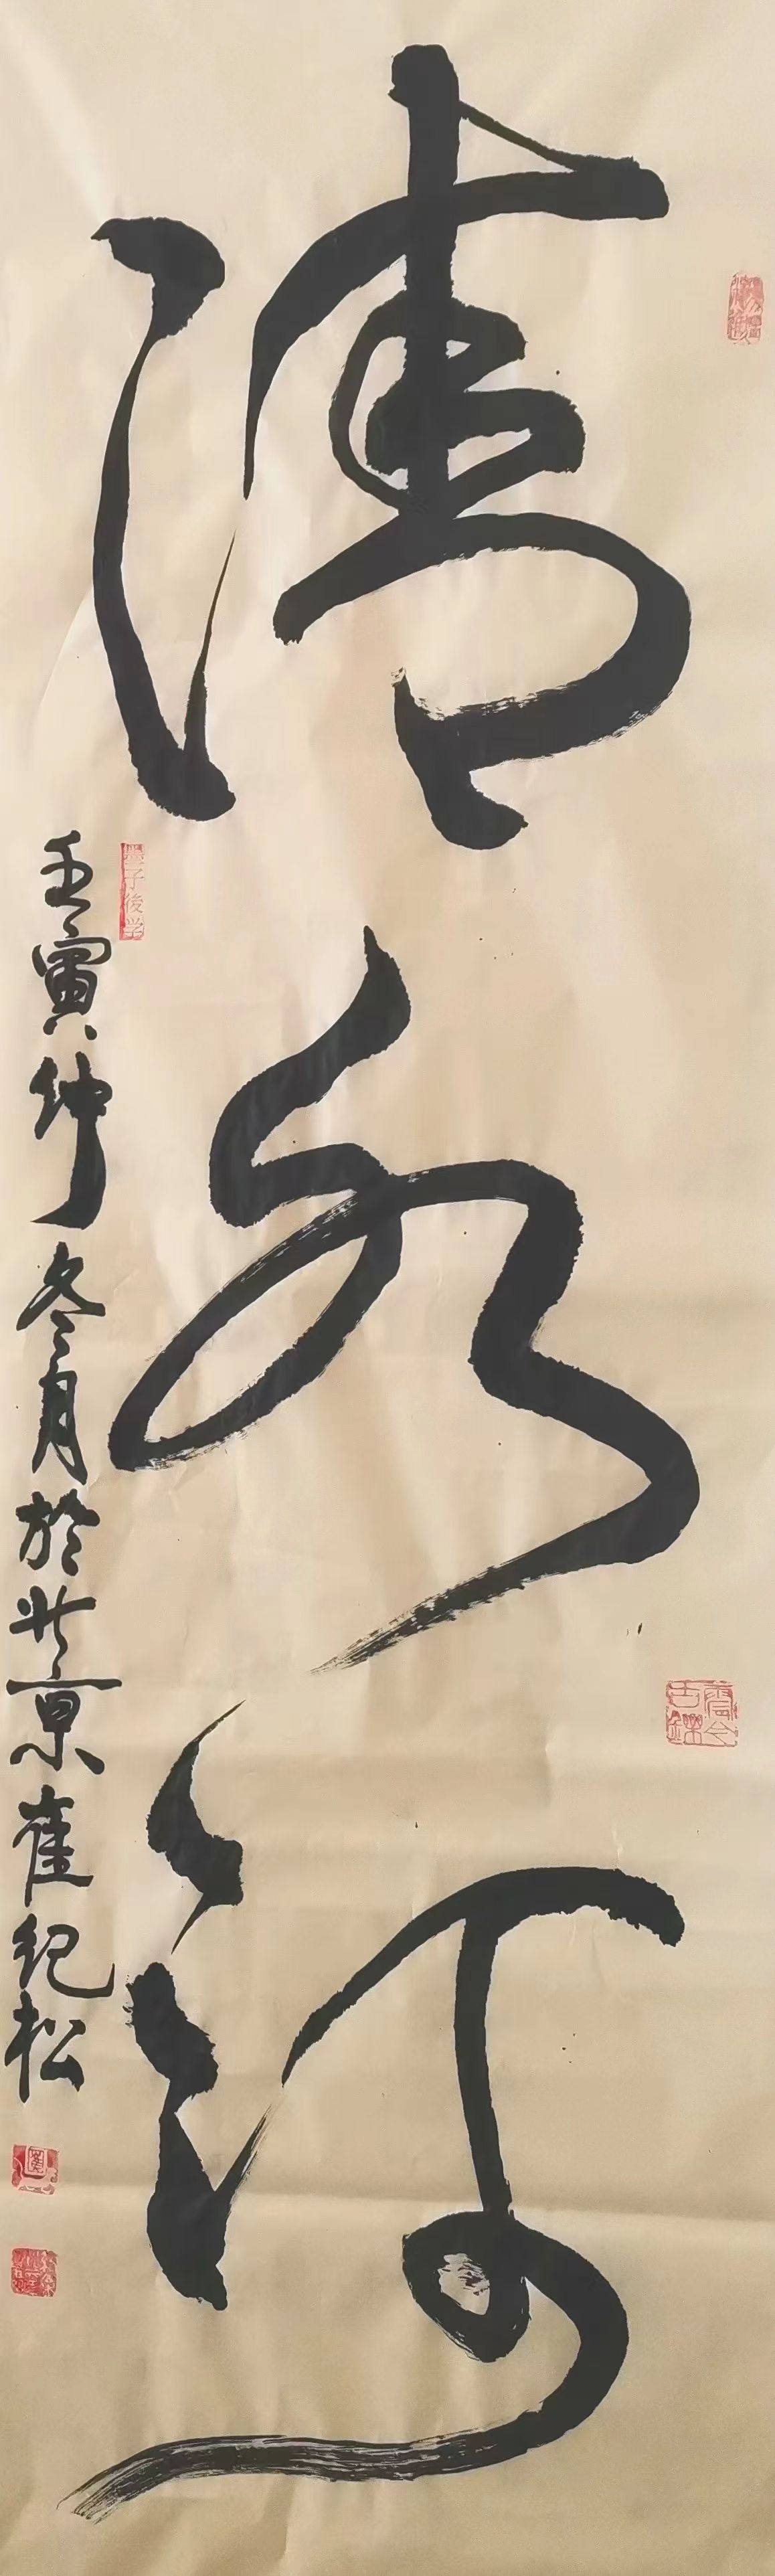 清水河
壬寅仲冬月於北京崔纪松
墨子後学